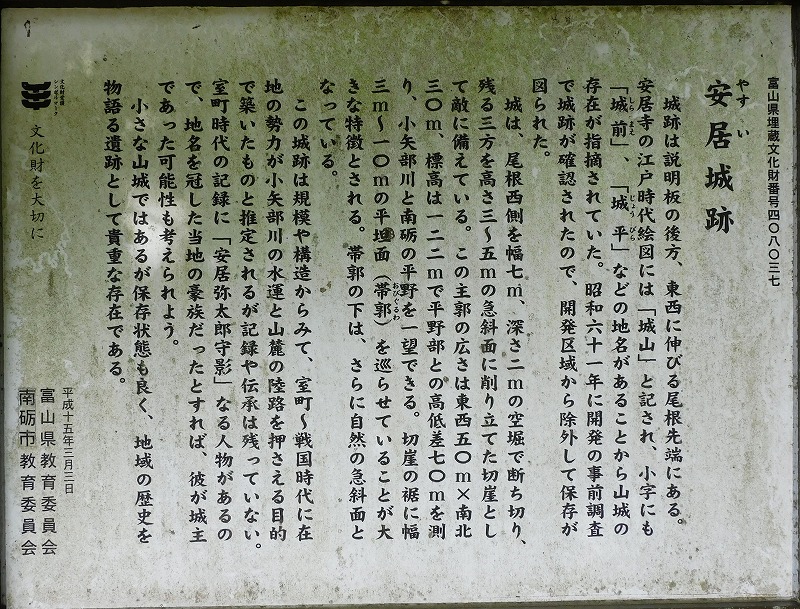 富山県埋蔵文化財番号四〇八〇三七
やすい
安居城跡
城跡は説明板の後方、東西に伸びる尾根先端にある。
安居寺の江戸時代絵図には「城山」と記され、小字にも
「城前」、「城平」などの地名があることから山城の
しろまえ じょうびら
存在が指摘されていた。昭和六十一年に開発の事前調査
で城跡が確認されたので、開発区域から除外して保存が
図られた。
城は、尾根西側を幅七m、深さ二mの空堀で断ち切り、
残る三方を高さ三～五mの急斜面に削り立てた切崖とし
て敵に備えている。この主郭の広さは東西五〇m×南北
三〇m、標高は一二二mで平野部との高低差七〇mを測
り、小矢部川と南砺の平野を一望できる。切崖の裾に幅
三m～一〇mの平坦面（帯郭）を巡らせていることが大
おびぐるわ
きな特徴とされる。帯郭の下は、さらに自然の急斜面と
なっている。
この城跡は規模や構造からみて、室町～戦国時代に在
地の勢力が小矢部川の水運と山麓の陸路を押さえる目的
で築いたものと推定されるが記録や伝承は残っていない。
室町時代の記録に「安居弥太郎守影」なる人物があるの
で、地名を冠した当地の豪族だったとすれば、彼が城主
であった可能性も考えられよう。
小さな山城ではあるが保存状態も良く、地域の歴史を
物語る遺跡として貴重な存在である。
文化財愛護
シンボルマーク
文化財を大切に
平成十五年三月三日
富山県教育委員会
南砺市教育委員会